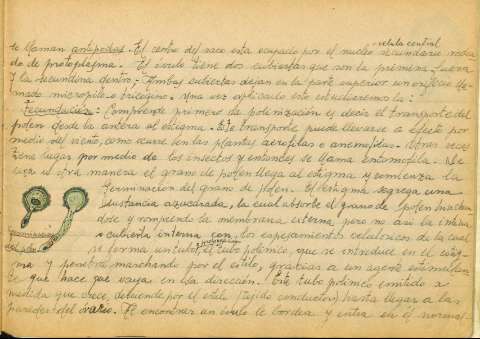 te llaman antipodas. El centro del saco esta ocupado por el nucleo secundario rodea-
celula central
do de protoplasma. El óvulo tiene dos cubiertas que son la primera fuera
y la secundina dentro; Ambas cubiertas dejan en la parte superior un orificio lla-
mado micropilo. Una vez aplicado esto estudiaremos la:
Fecundación: Comprende primero de polinización es decir el transporte del
polen desde la antera al estigma. Este transporte puede llevarse a efecto por
medio del viento, como ocurre en las plantas aerofilas o anemofilas. Otras veces
tiene lugar por medio de los insectos y entonces se llama entomofila. De
una u otra manera el grano de polen llega al estigma y comienza la
germinación del grano de polen. El estigma segrega una
sustancia azucarada, la cual absorbe el grano de polen hinchan-
dose y rompiendo la membrana externa pero no asi la intina
o cubierta interna con los espesamientos celulosicos de la cual
germinación
del polen
se forma un tubo, el tubo polinico, que se introduce en el estig-
ma y penetra marchando por el estilo, gracias a un agente
te que hace que vaya en esa dirección. Este tubo polinico emitido a
medida que crece, desciende por el estilo (tejido conductor) hasta llegar a las
paredes del ovario. Al encontrar un óvulo le bordea y entra en el